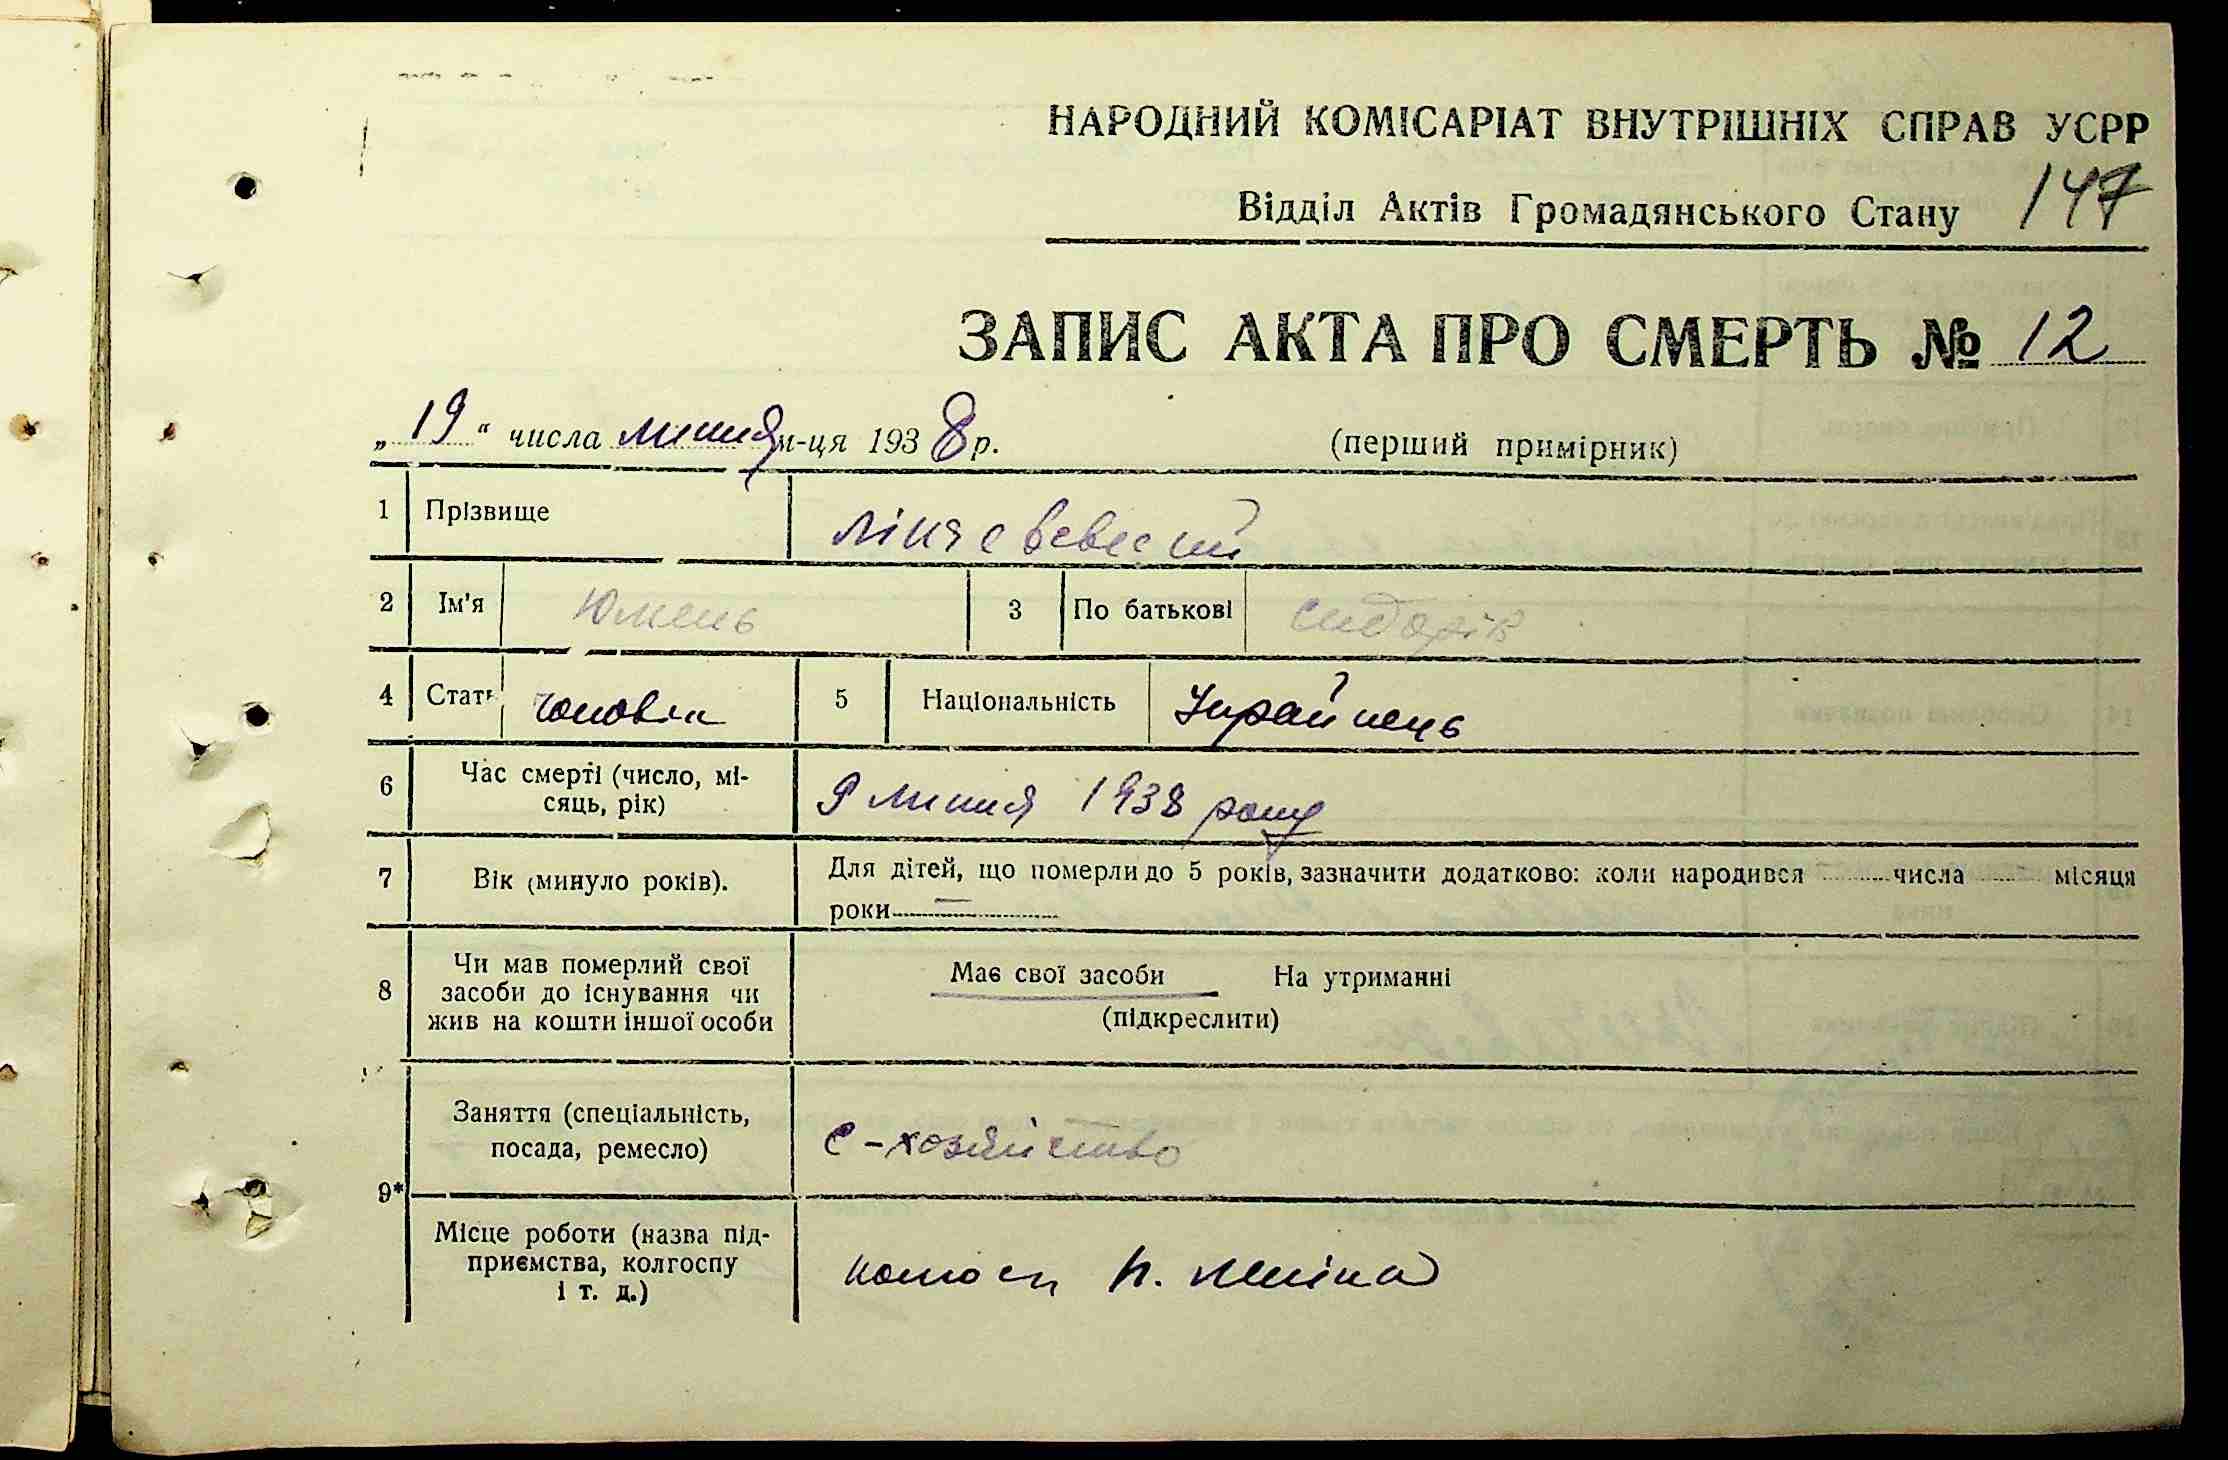 НАРОДНИЙ КОМІСАРІАТ ВНУТРІШНІХ СПРАВ УСРР
Відділ Актів Громадянського Стану 147
ЗАПИС АКТА ПРО СМЕРТЬ № 12
„19“ числа липня м-ця 1938 р. (перший примірник)
1 Прізвище
2 Ім'я Юмень 3 По батькові Сидорів
4 Стать чоловік 5 Національність Украйнець
6 Час смерті (число, мі-
сяць, рік) 9 липня 1938 року
7 Вік (минуло років). Для дітей, що померли до 5 років, зазначити додатково: коли народився числа місяця
роки —
8 Чи мав померлий свої
засоби до існування чи
жив на кошти іншої особи
Має свої засоби На утриманні
(підкреслити)
9* Заняття (спеціальність,
посада, ремесло) С-хозяйство
Місце роботи (назва під-
приємства, колгоспу
і т. д.)
колгосп